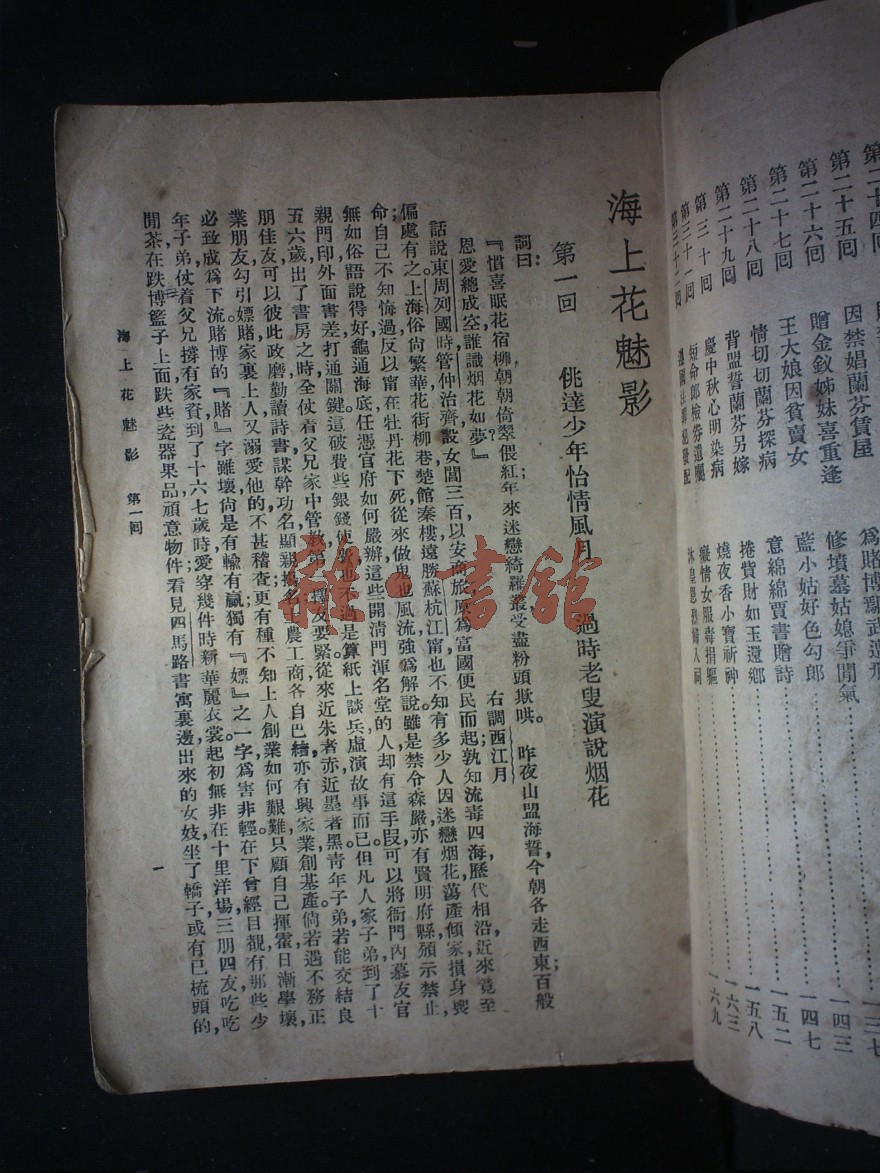 第二十四回
第二十五回
第二十六回 因禁娼蘭芬賃屋
第二十七回 贈金釵姊妹喜重逢
第二十八回 王大娘因貧賣女
第二十九回 情切切蘭芬探病
第三十回 背盟誓蘭芬另嫁
第三十一回 慶中秋心明染病
第三十二回 短命郎檢券遺囑
爲賭博
修墳墓姑媳爭閒氣 一四三
藍小姑好色勾郎 一四七
意綿綿賈書贈詩 一五二
捲貨財如玉還鄉 一五八
燒夜香小寶祈神 一六三
癡情女服毒捐軀 一六九
海上花魅影
第一回 佻達少年怡情風月 過時老叟演說烟花
詞曰:
『慣喜眠花宿柳朝朝倚翠偎紅年來迷戀綺羅叢受盡粉頭欺哄。昨夜山盟海誓,今朝各走西東百般
恩愛總成空誰識烟花如夢?』 右調西江月
話說東周列國時管仲治齊設女閭三百以安商旅原爲富國便民而起孰知流毒四海歷代相沿近來竟至
偏處有之上海俗尚繁華花街柳巷楚館秦樓遠勝蘇杭江甯也不知有多少人因迷戀烟花蕩產傾家損身
命自己不知悔過反以甯在牡丹花下死從來做鬼也風流強爲解說雖是禁令森嚴亦有賢明府縣頒示禁止,
無如俗語說得好龜通海底任憑官府如何嚴辦這些開清門渾名堂的人却有這手段可以將衙門內幕友官
親門印外面書差打通關鍵這破費些銀錢使
是算紙上談兵虛演故事而已。但凡人家子弟到了十
五六歲出了書房之時全仗着父兄家中管教第
擇友要緊從來近朱者赤近墨者黑青年子弟若能交結良
朋佳友可以彼此政磨勤讀詩書謀幹功名顯親揚名
農工商各自巴結亦有興家業創基產倘若遇不務正
業朋友勾引嫖賭家裏上人又溺愛他的不甚稽查更有種不知上人創業如何艱難只顧自己揮霍日漸學壞,
必致成爲下流賭博的『賭』字雖壞尙是有輸有贏獨有『嫖』之一字爲害非輕在下曾經目覩有那些少
年子弟仗着父兄撐有家貲到了十六七歲時愛穿幾件時新華麗衣裳起初無非在十里洋場三朋四友吃吃
閒茶在跌博籃子上面跌些瓷器果品頑意物件看見四馬路書寓裏邊出來的女妓坐了轎子或有已梳頭的,
海上花魅影 第一回
一